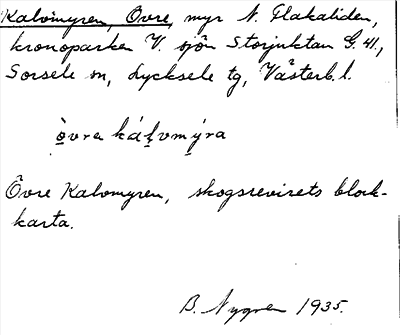 Kalvmyren, Övre, myr N. Glakaliden,
kronoparken V. sjön Storjuktan G. 41,
Sorsele sn, Lycksele tg, Västerb. l.
ò̱vra káḷvmý̱ra
Övre Kalvmyren, skogsrevirets block-
karta.
B. Nygren 1935.